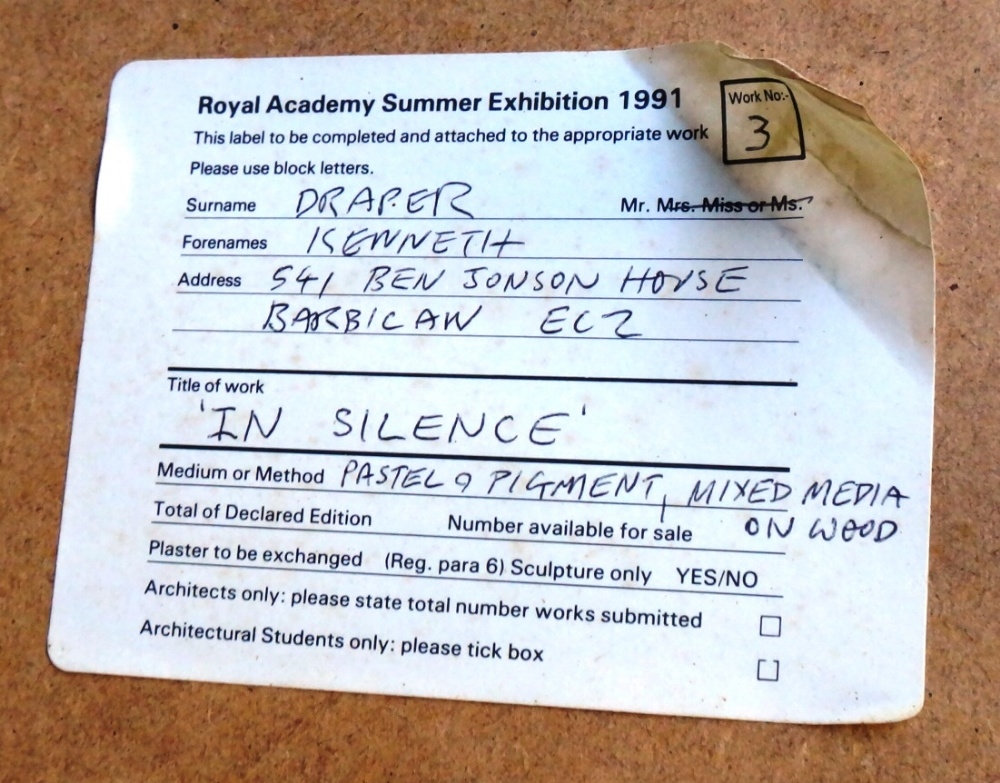 Royal Academy Summer Exhibition 1991
Work No:-
3
This label to be completed and attached to the appropriate work
Please use block letters.
Surname DRAPER Mr. Mrs. Miss or Ms.
Forenames KENNETH
Address 541 BEN JONSON HOUSE
BARBICAN EC2
Title of work
'IN SILENCE'
Medium or Method PASTEL & PIGMENT, MIXED MEDIA
ON WOOD
Total of Declared Edition Number available for sale
Plaster to be exchanged (Reg. para 6) Sculpture only YES/NO
Architects only: please state total number works submitted
Architectural Students only: please tick box